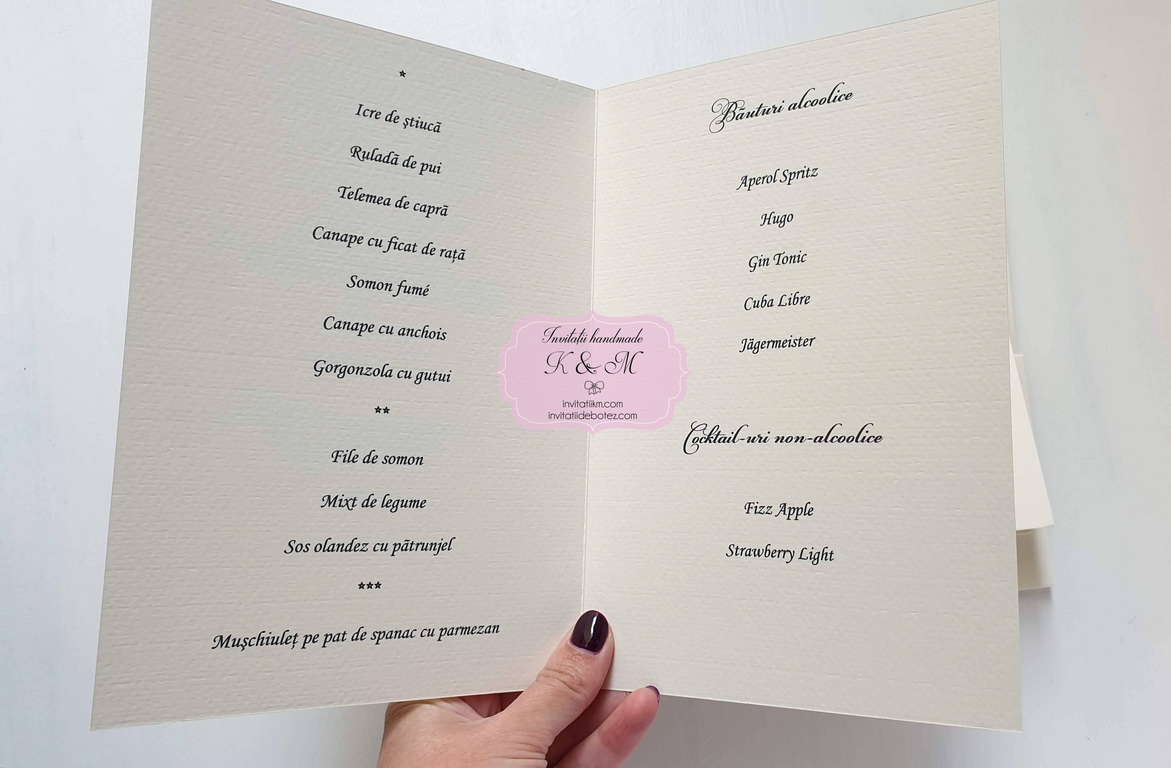 *
Icre de ştiucã
Ruladã de pui
Telemea de caprã
Canape cu ficat de raţã
Somon fumé
Canape cu anchois
Gorgonzola cu gutui
**
File de somon
Mixt de legume
Sos olandez cu pãtrunjel
***
Muşchiuleţ pe pat de spanac cu parmezan
Bãuturi alcoolice
Aperol Spritz
Hugo
Gin Tonic
Cuba Libre
Jägermeister
Cocktail-uri non-alcoolice
Fizz Apple
Strawberry Light
Invitaţii handmade
K & M
invitatiikm.com
invitatiidebotez.com